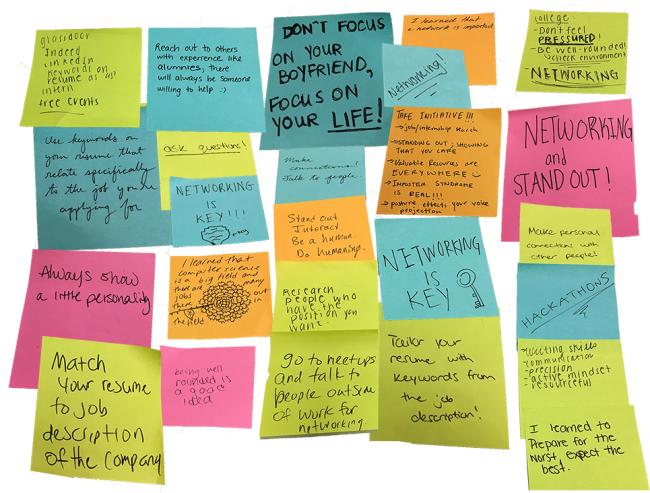 glassdoor
Indeed
LinkedIn
Keywords on
resume as an
intern
free events
Reach out to others
with experience like
alumnies, there
will always be someone
willing to help :)
DON'T FOCUS
ON YOUR
BOYFRIEND,
FOCUS ON
YOUR LIFE!
I learned that
a network is important.
Networking!
college:
- Don't feel
PRESSURED!
- BE well-rounded!
check environment
- NETWORKING
Use keywords on
your resume that
relate specifically
to the job you're
applying for
ask questions!
NETWORKING
IS
KEY!!!
Make
connections!
Talk to people.
TAKE INITIATIVE!!!
→ job/internship search
→ STANDING OUT; SHOWING
THAT YOU CARE
→ Valuable Resources are
EVERYWHERE
→ IMPOSTER SYNDROME
IS REAL!!!
→ posture effects your voice
projection
NETWORKING
and
STAND OUT!
Stand out
Interact
Be a human.
Do humanings.
Make personal
connections with
other people!
Always show
a little personality
I learned that
computer science
is a big field and
there are many
jobs out
there in
the field
Research
people who
have the
position you
want.
NETWORKING
IS
KEY
HACKATHONS
Match
your resume
to job
description
of the company
being well
rounded is
a good
idea
go to meetups
and talk to
people outside
of work for
networking
Tailor your
resume with
keywords from
the job
description!
- writing skills
- communication
- precision
- active mindset
- resourceful
I learned to
Prepare for the
worst, expect the
best.